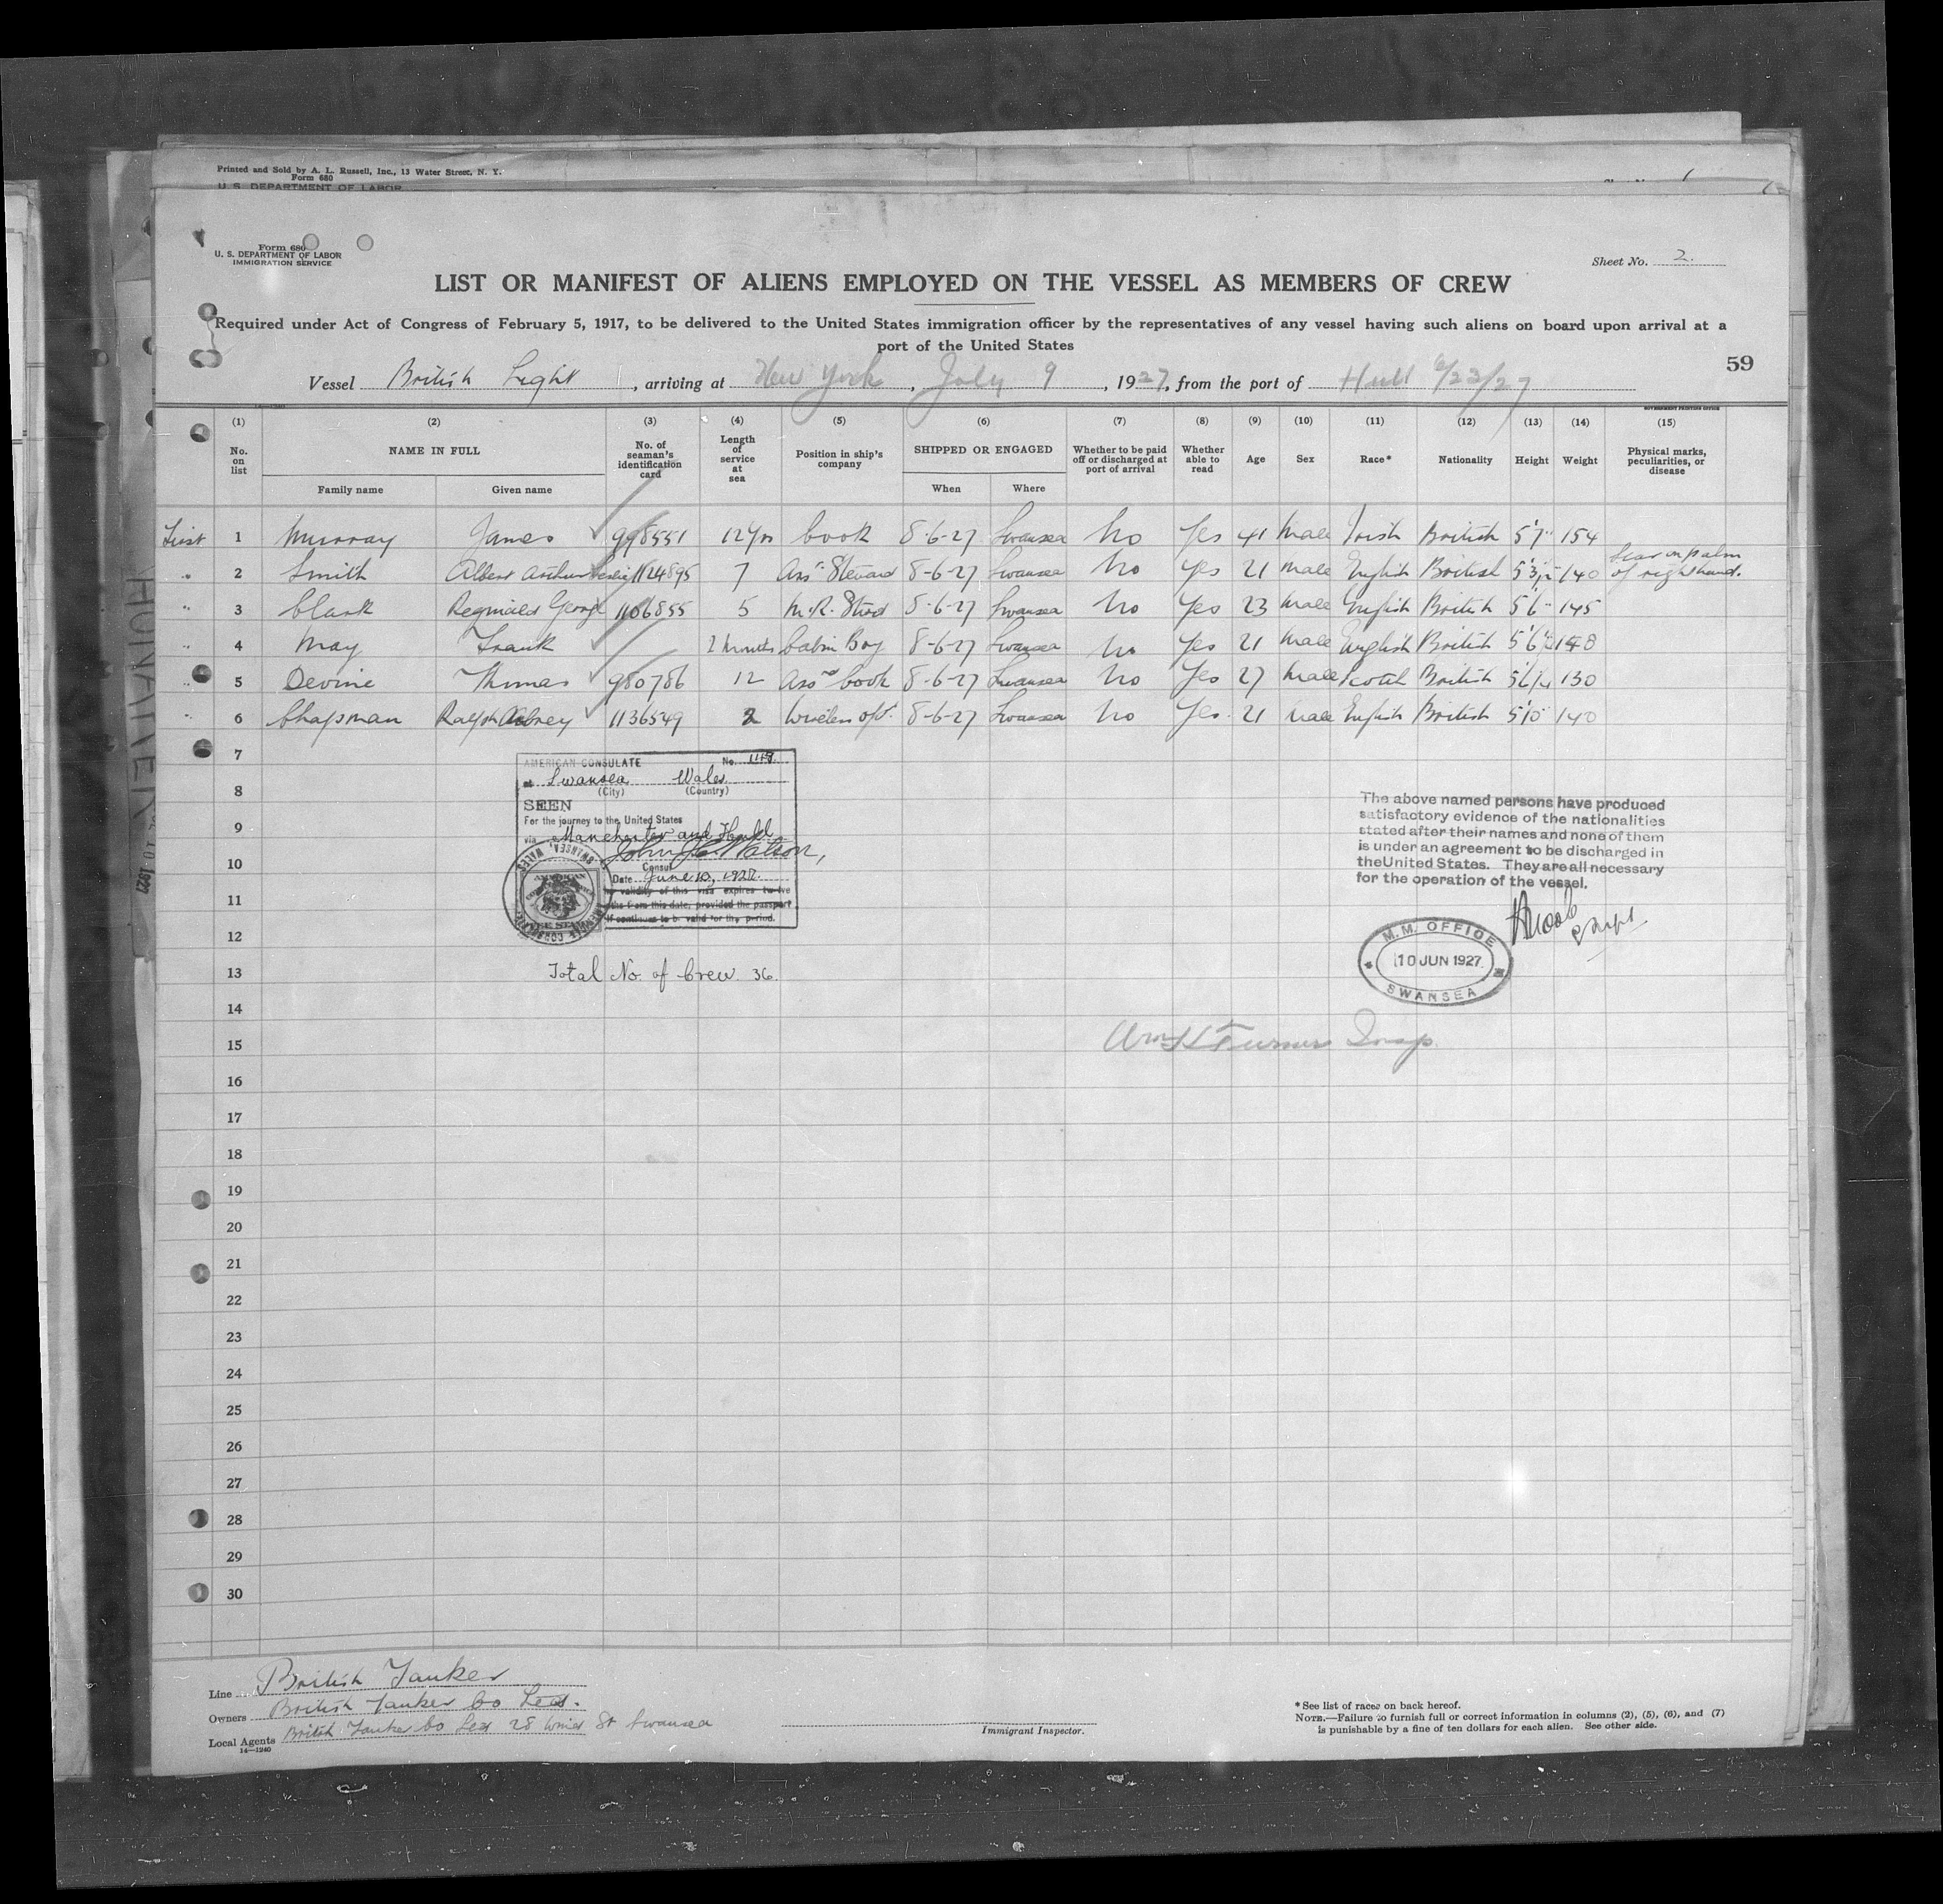 Printed and Sold by A. L. Russell, Inc., 13 Water Street, N. Y.
Form 680
U. S. DEPARTMENT OF LABOR
Form 680
U. S. DEPARTMENT OF LABOR
IMMIGRATION SERVICE
Sheet No. 2.
LIST OR MANIFEST OF ALIENS EMPLOYED ON THE VESSEL AS MEMBERS OF CREW
Required under Act of Congress of February 5, 1917, to be delivered to the United States immigration officer by the representatives of any vessel having such aliens on board upon arrival at a
port of the United States
59
Vessel British Light, arriving at New York, July 9, 1927, from the port of Hull 6/23/27
GOVERNMENT PRINTING OFFICE
(1) (2) (3) (4) (5) (6) (7) (8) (9) (10) (11) (12) (13) (14) (15)
No. on list NAME IN FULL No. of seaman's identification card Length of service at sea Position in ship's company SHIPPED OR ENGAGED Whether to be paid off or discharged at port of arrival Whether able to read Age Sex Race* Nationality Height Weight Physical marks, peculiarities, or disease
Family name Given name When Where
First 1 Murray James 998551 12 yrs Cook 8-6-27 Swansea No Yes 41 Male Irish British 5'7" 154
" 2 Smith Albert Arthur Leslie 1124895 7 Ass. Steward 8-6-27 Swansea No Yes 21 Male English British 5'3½" 140 Scar on palm of right hand.
" 3 Clark Reginald George 1106855 5 M.R. Stwd 8-6-27 Swansea No Yes 23 Male English British 5'6" 145
" 4 May Frank 2 months Cabin Boy 8-6-27 Swansea No Yes 21 Male English British 5'6½ 148
" 5 Devine Thomas 980786 12 Asst Cook 8-6-27 Swansea No Yes 27 Male Scotch British 130
" 6 Chapman Ralph Aubrey 1136549 2 Wireless opt. 8-6-27 Swansea No Yes. 21 Male English British 5'10" 140
7
AMERICAN CONSULATE No.
at Swansea Wales
8
(City) (Country)
SEEN
For the journey to the United States
9
via Manchester and Hull
John H. Watson,
10
Consul
Date June 10, 1927.
The validity of this visa expires twelve
11
months from this date, provided the passport
if continues to be valid for the period.
The above named persons have produced
satisfactory evidence of the nationalities
stated after their names and none of them
is under an agreement to be discharged in
the United States. They are all necessary
for the operation of the vessel.
M. M. OFFICE
10 JUN 1927
SWANSEA
12
13 Total No. of Crew. 36.
14
15 Turner Insp.
16
17
18
19
20
21
22
23
24
25
26
27
28
29
30
Line British Tanker
Owners British Tanker Co Ltd.
Local Agents British Tanker Co Ltd 28 Wind St Swansea
14—1240
Immigrant Inspector.
*See list of races on back hereof.
NOTE.—Failure to furnish full or correct information in columns (2), (5), (6), and (7)
is punishable by a fine of ten dollars for each alien. See other side.